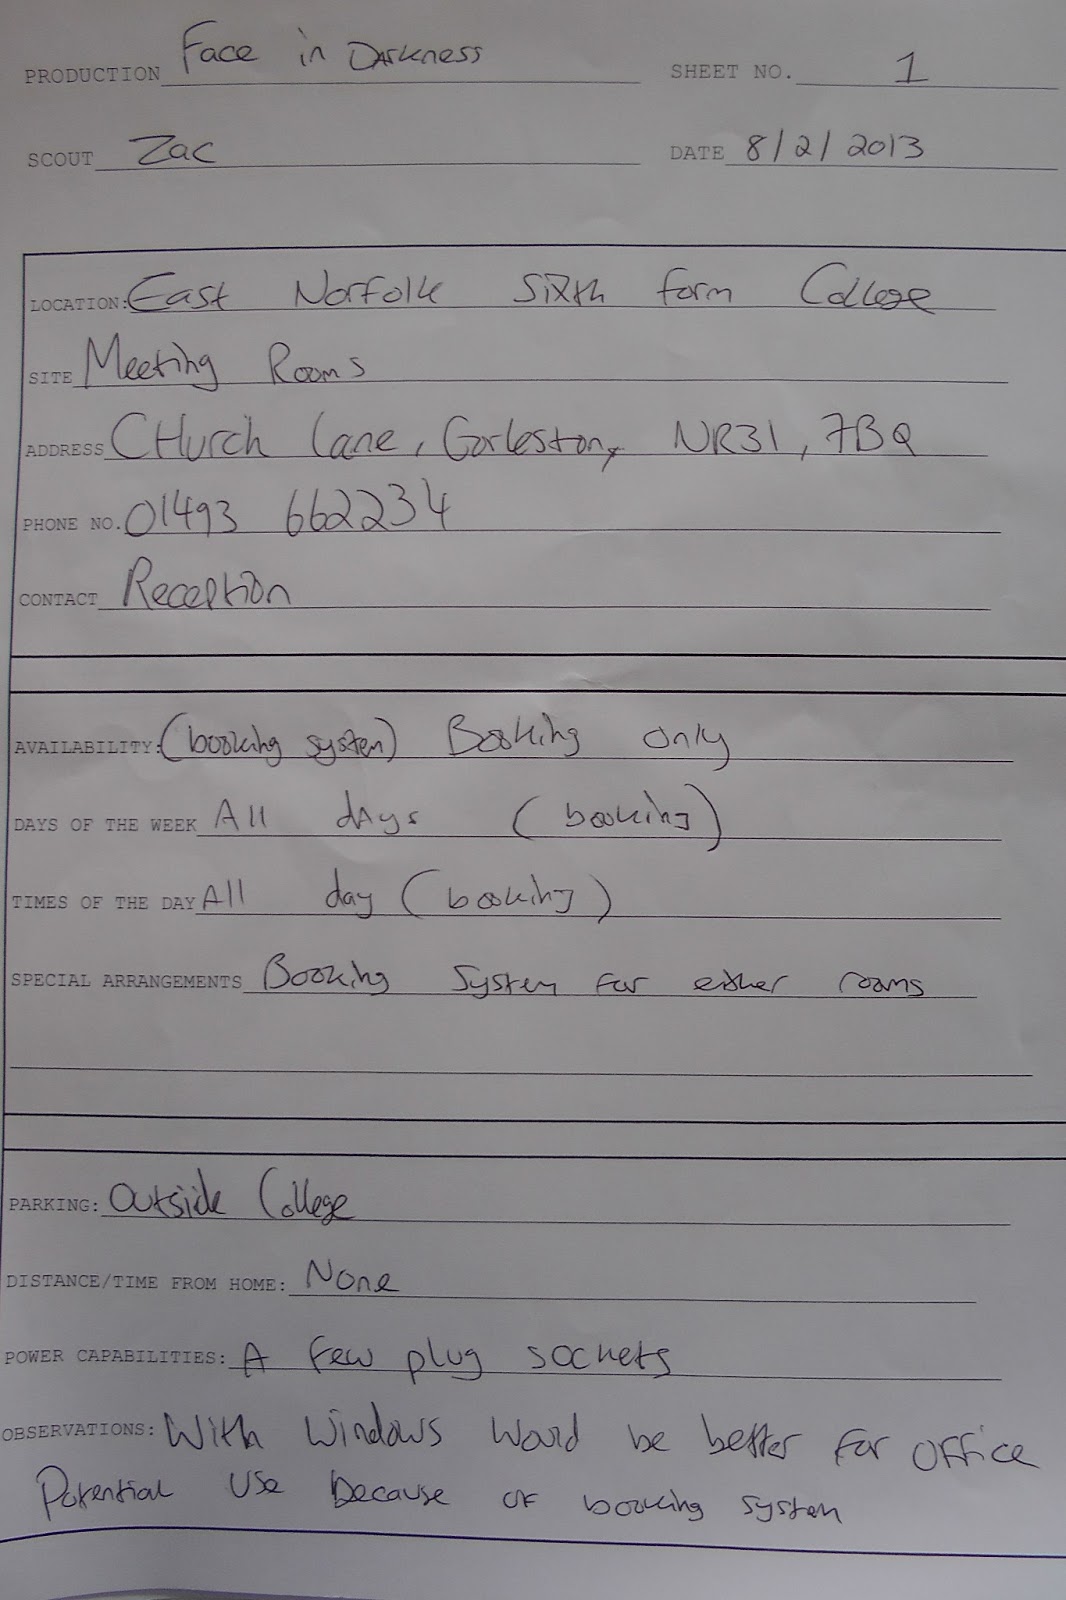 PRODUCTION Face in Darkness SHEET NO. 1
SCOUT Zac DATE 8/2/2013
LOCATION: East Norfolk Sixth form College
SITE Meeting Rooms
ADDRESS CHurch lane, Gorleston, NR31, 7BQ
PHONE NO. 01493 662234
CONTACT Reception
AVAILABILITY: (booking system) Booking only
DAYS OF THE WEEK All dAys (booking)
TIMES OF THE DAY All day (booking)
SPECIAL ARRANGEMENTS Booking System For either rooms
PARKING: Outside College
DISTANCE/TIME FROM HOME: None
POWER CAPABILITIES: A few plug sockets
OBSERVATIONS: With Windows Would be better for office
Potential Use Because of booking system